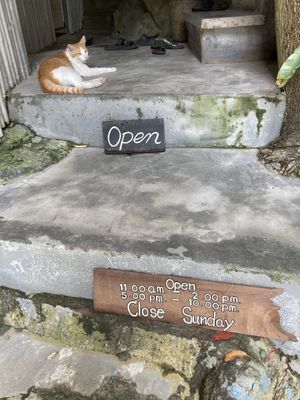 Open
Open
11 00 a.m - 2 00 p.m.
5 00 p.m. - 10:00 p.m.
Close Sunday